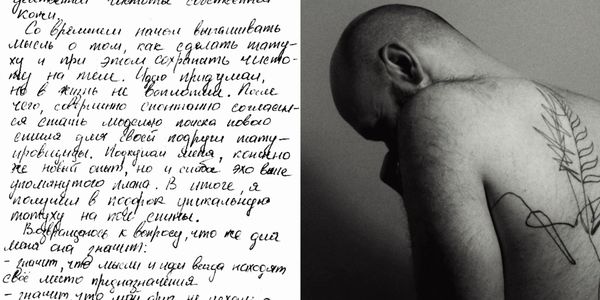 кожи.
Со временем начал вынашивать
мысль о том, как сделать тату-
ху и при этом сохранить чисто-
ту на теле. Идею придумал,
но в жизнь не воплотил. После
чего, совершенно спонтанно согласил-
ся стать моделью поиска нового
стиля для своей подруги тату-
ировщицы. Подкупил меня, конечно
же новый опыт, но и слабое эхо выше
упомянутого плана. В итоге, я
получил в подарок уникальную
татуху на пол спины.
Возвращаюсь к вопросу, что же для
меня она значит:
- значит, что мысли и идеи всегда находят
своё место предназначения
- значит что